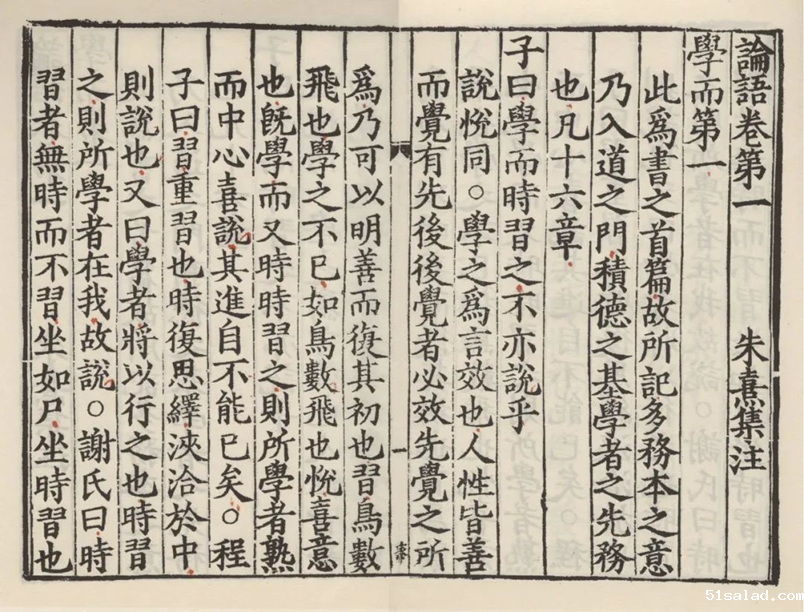 論語卷第一 朱熹集注
學而第一
此爲書之首篇故所記多務本之意
乃入道之門積德之基學者之先務
也凡十六章
子曰學而時習之不亦說乎
說悅同○學之爲言效也人性皆善
而覺有先後後覺者必效先覺之所
爲乃可以明善而復其初也習鳥數
飛也學之不已如鳥數飛也悅喜意
也旣學而又時時習之則所學者熟
而中心喜說其進自不能已矣○程
子曰習重習也時復思繹浹洽於中
則說也又曰學者將以行之也時習
之則所學者在我故說○謝氏曰時
習者無時而不習坐如尸坐時習也
一
51salad.com